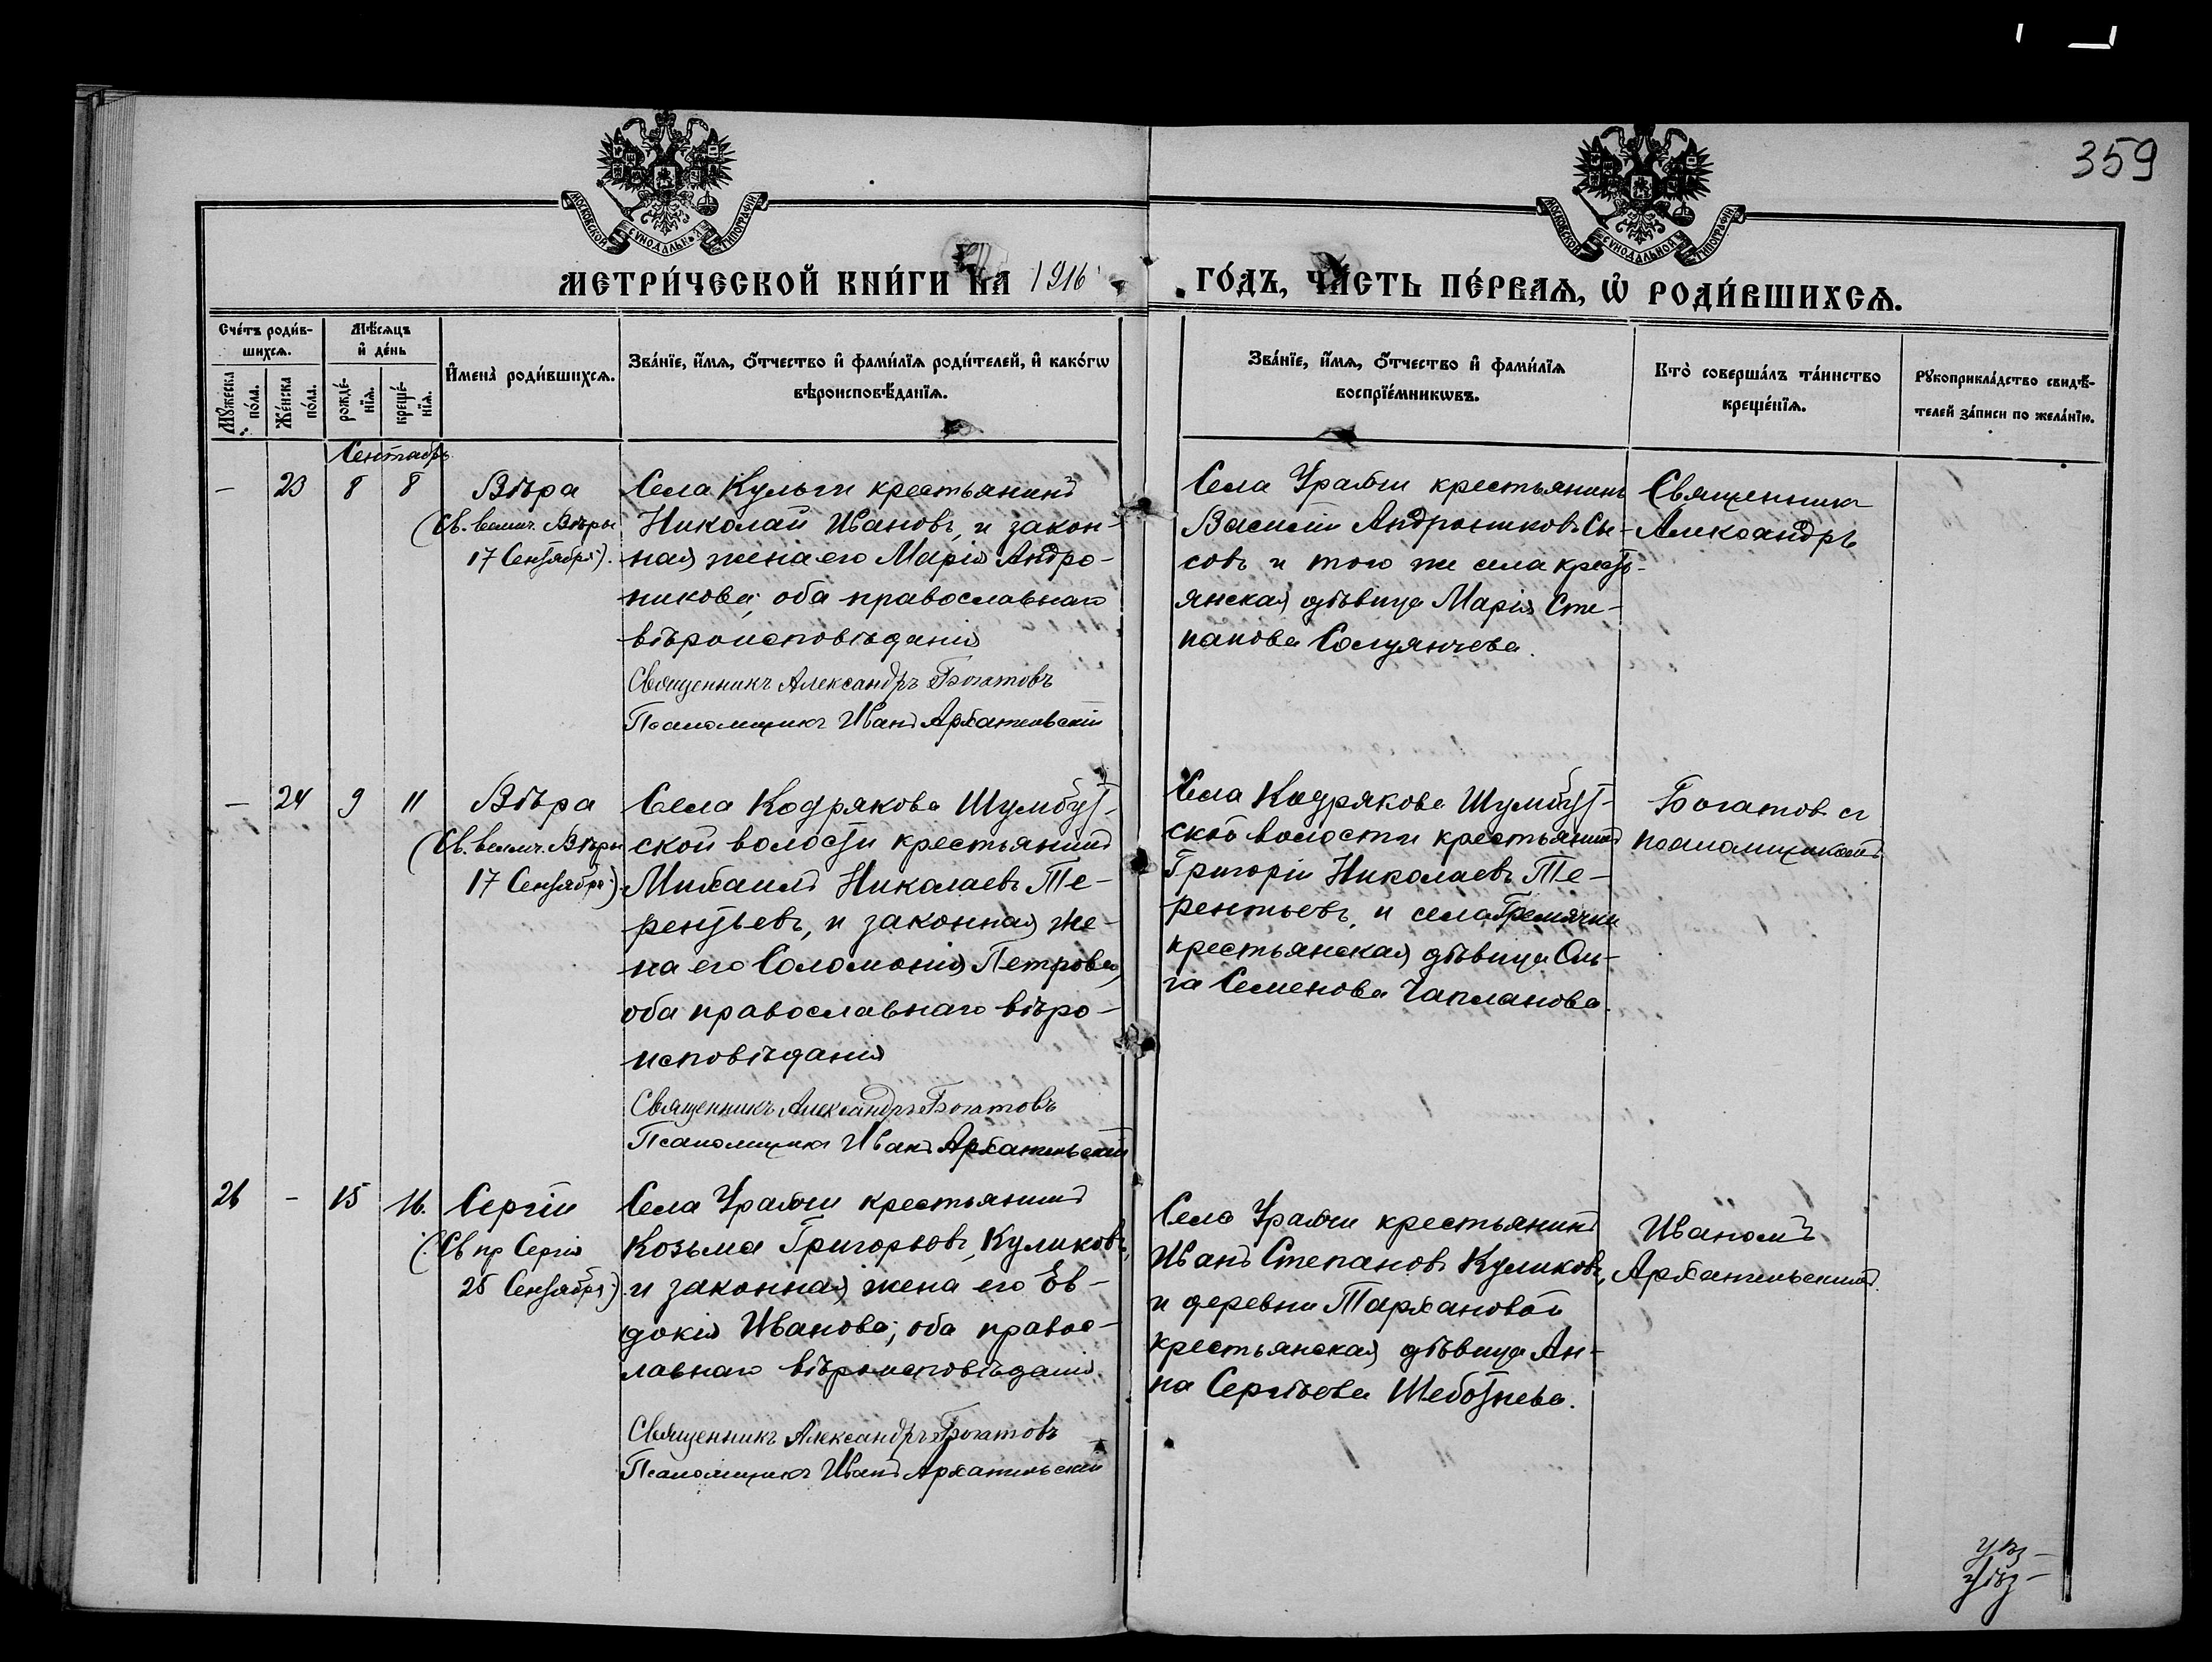 359
МОСКОВСКОЙ СУНОДАЛЬНОЙ ТИПОГРАФІИ
МОСКОВСКОЙ СУНОДАЛЬНОЙ ТИПОГРАФІИ
МЕТРИ́ЧЕСКОЙ КНИ́ГИ НА 1916 ГО́ДЪ, ЧА́СТЬ ПЕ́РВАѦ, Ѡ҆ РОДИ́ВШИХСѦ.
Сче́тъ роди́в-
шихсѧ.
Мѣ́сѧцъ
и҆ де́нь
Мꙋ́жеска
по́ла.
Же́нска
по́ла.
рожде́-
нїѧ.
креще́-
нїѧ.
И҆мена̀ роди́вшихсѧ.
Зва́нїе, и҆́мѧ, ѻ҆́тчество и҆ фами́лїѧ роди́телей, и҆ како́гѡ
вѣроисповѣ́данїѧ.
Зва́нїе, и҆́мѧ, ѻ҆́тчество и҆ фами́лїѧ
воспрїе́мникѡвъ.
Кто̀ соверша́лъ та́инство
креще́нїѧ.
Рꙋкоприкла́дство свидѣ́-
телей за́писи по жела́нїю.
Сентябрь
— 23 8 8
Вѣра
(Св. велич. Вѣры
17 Сентября).
Села Кульги крестьянинъ
Николай Ивановъ, и закон-
ная жена его Марія Андро-
никова; оба православнаго
вѣроисповѣданія
Священникъ Александръ Богатовъ
Псаломщикъ Иванъ Архангельскій
Села Урахчи крестьянинъ
Василій Андрониковъ Сы-
совъ и того же села кресть-
янская дѣвица Марія Сте-
панова Солуянчева.
Священникъ
Александръ
— 24 9 11
Вѣра
(Св. велич. Вѣры
17 Сентября)
Села Кодрякова Шумбут-
ской волости крестьянинъ
Михаилъ Николаевъ Те-
рентьевъ, и законная же-
на его Соломонія Петрова,
оба православнаго вѣро-
исповѣданія
Священникъ Александръ Богатовъ
Псаломщикъ Иванъ Архангельскій
Села Кодрякова Шумбут-
ской волости крестьянинъ
Григорій Николаевъ Те-
рентьевъ, и села Гремячки
крестьянская дѣвица Оль-
га Семенова Чапланова.
Богатов съ
псаломщикомъ
26 — 15 16.
Сергій
(Св пр Сергія
25 Сентября).
Села Урахчи крестьянинъ
Козьма Григорьевъ Куликовъ,
и законная жена его Ев-
докія Иванова; оба правос-
лавнаго вѣроисповѣданія.
Священникъ Александръ Богатовъ
Псаломщикъ Иванъ Архангельскій
Села Урахчи крестьянинъ
Иванъ Степановъ Куликовъ,
и деревни Тархановой
крестьянская дѣвица Ан-
на Сергѣева Шеботнева.
Иваномъ
Архангельскимъ.